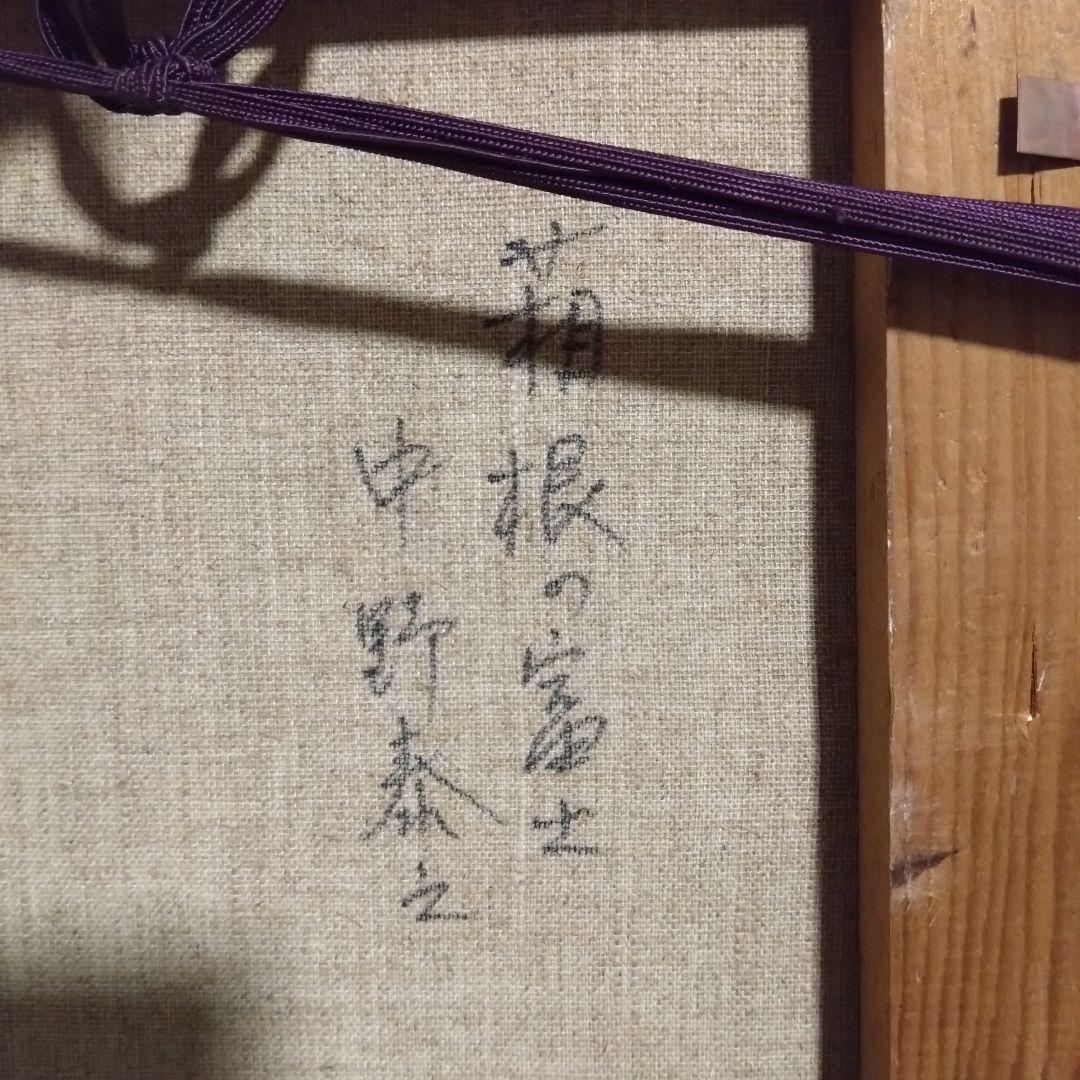 箱根の富士
中野泰之